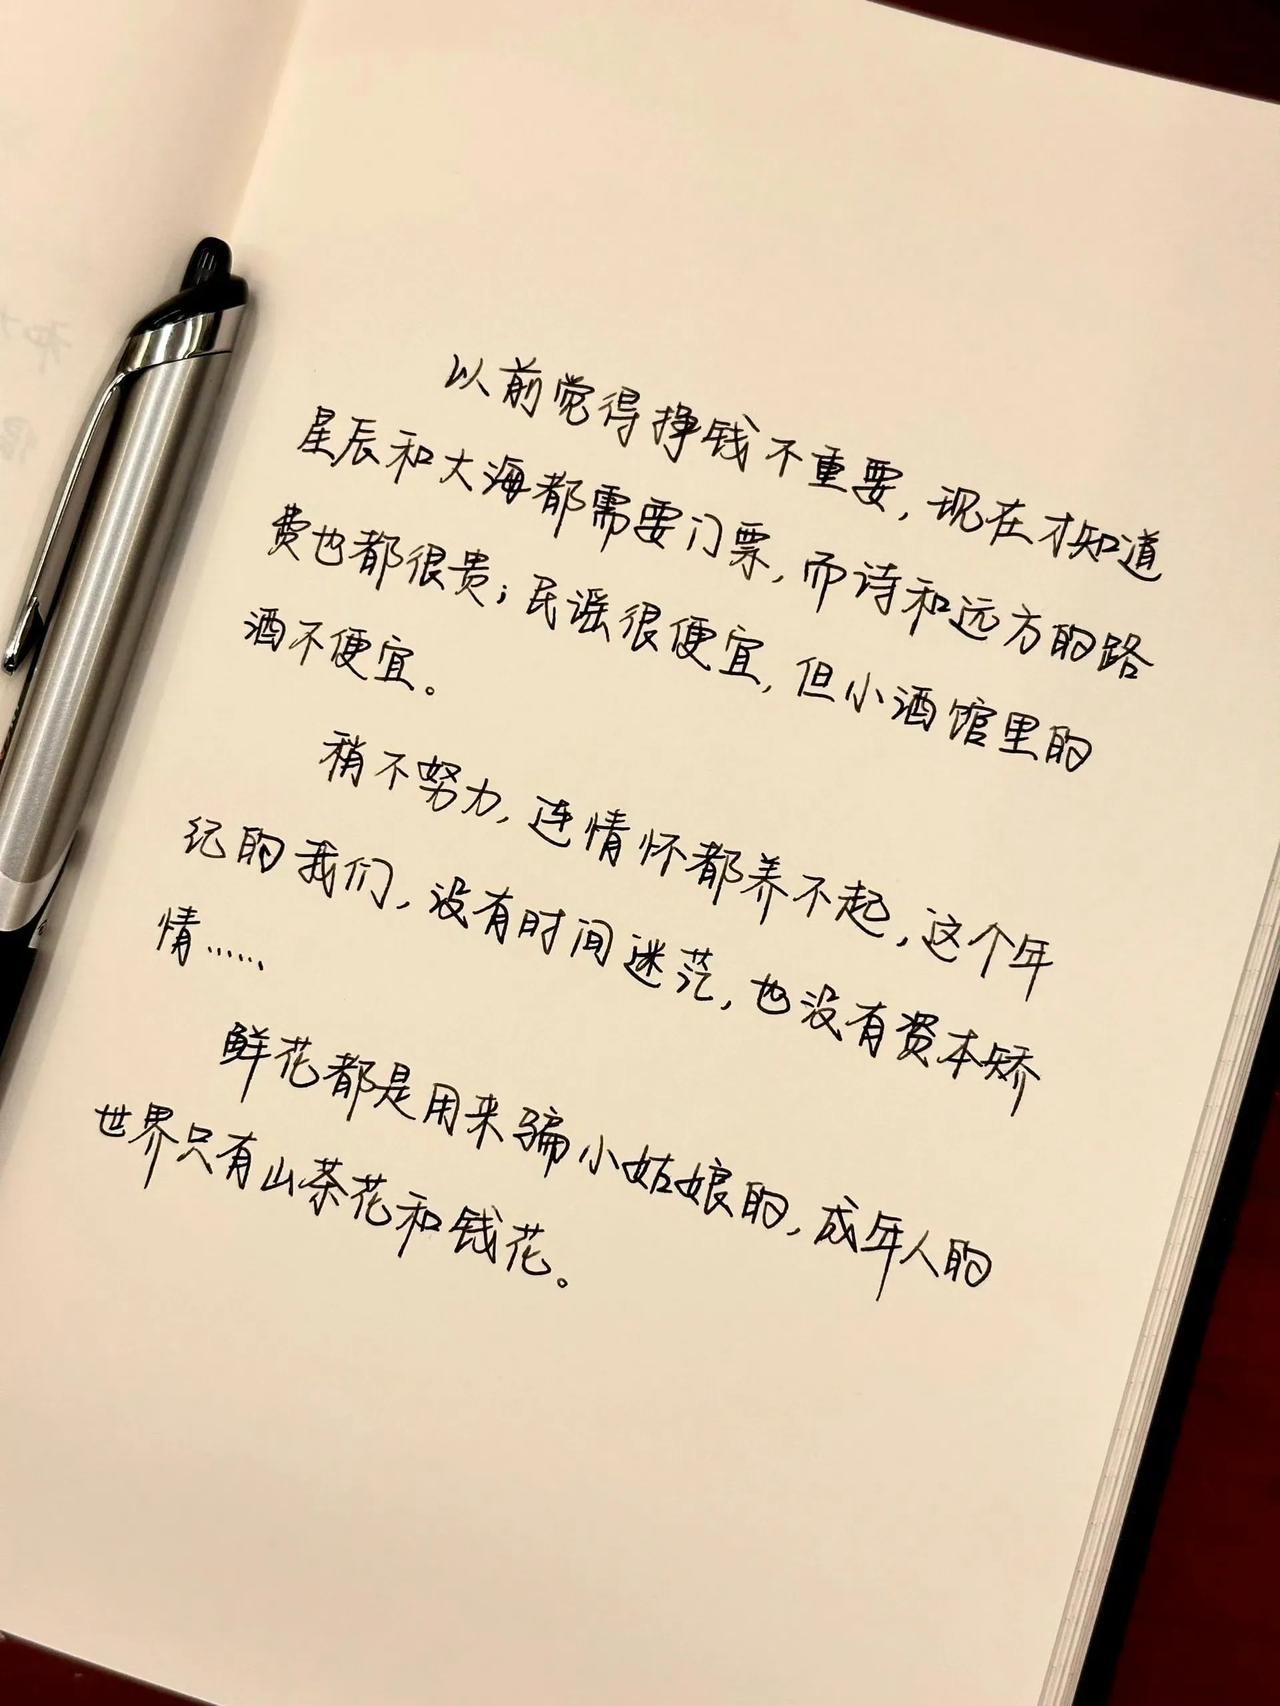 以前觉得挣钱不重要，现在才知道
星辰和大海都需要门票，而诗和远方的路
费也都很贵；民谣很便宜，但小酒馆里的
酒不便宜。
稍不努力，连情怀都养不起，这个年
纪的我们，没有时间迷茫，也没有资本矫
情……
鲜花都是用来骗小姑娘的，成年人的
世界只有山茶花和钱花。